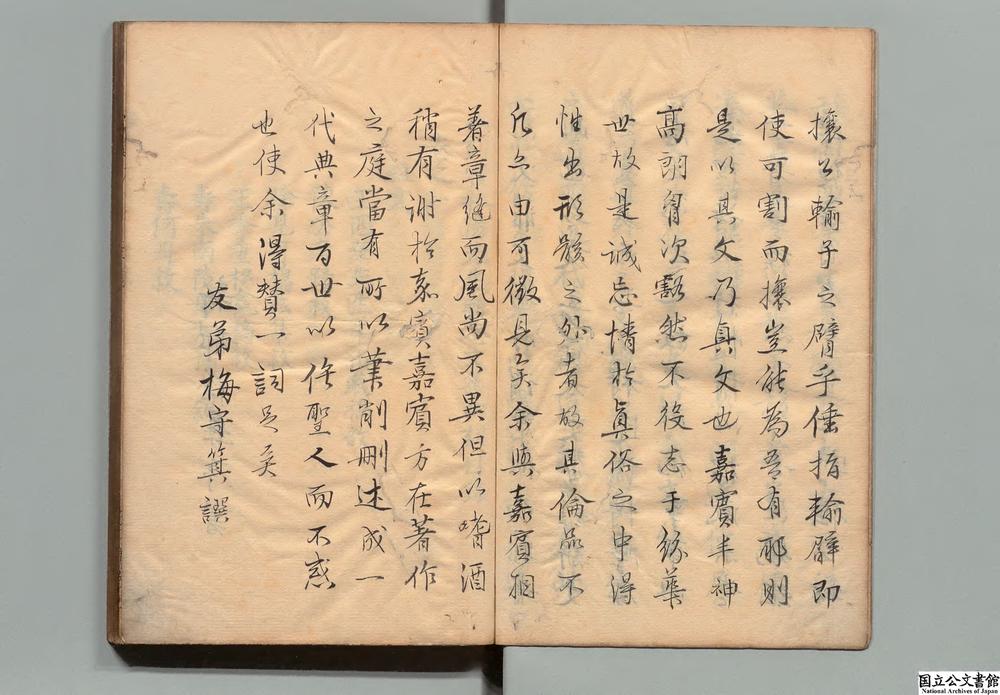 攘公輸子之臂乎倕指輸臂即
使可割而攘豈能為吾有耶則
是以其文乃真文也嘉賓丰神
高朗胷次豁然不役志于紛華
世故是誠忘情於真俗之中得
性出形骸之外者故其倫品不
凡亦由可徵見矣余與嘉賓相
著章縫而風尚不異但以嗜酒
稍有謝於嘉賓嘉賓方在著作
之庭當有所以筆削刪述成一
代典章百世以俟聖人而不惑
也使余得贊一詞足矣
友弟梅守箕譔
国立公文書館
National Archives of Japan